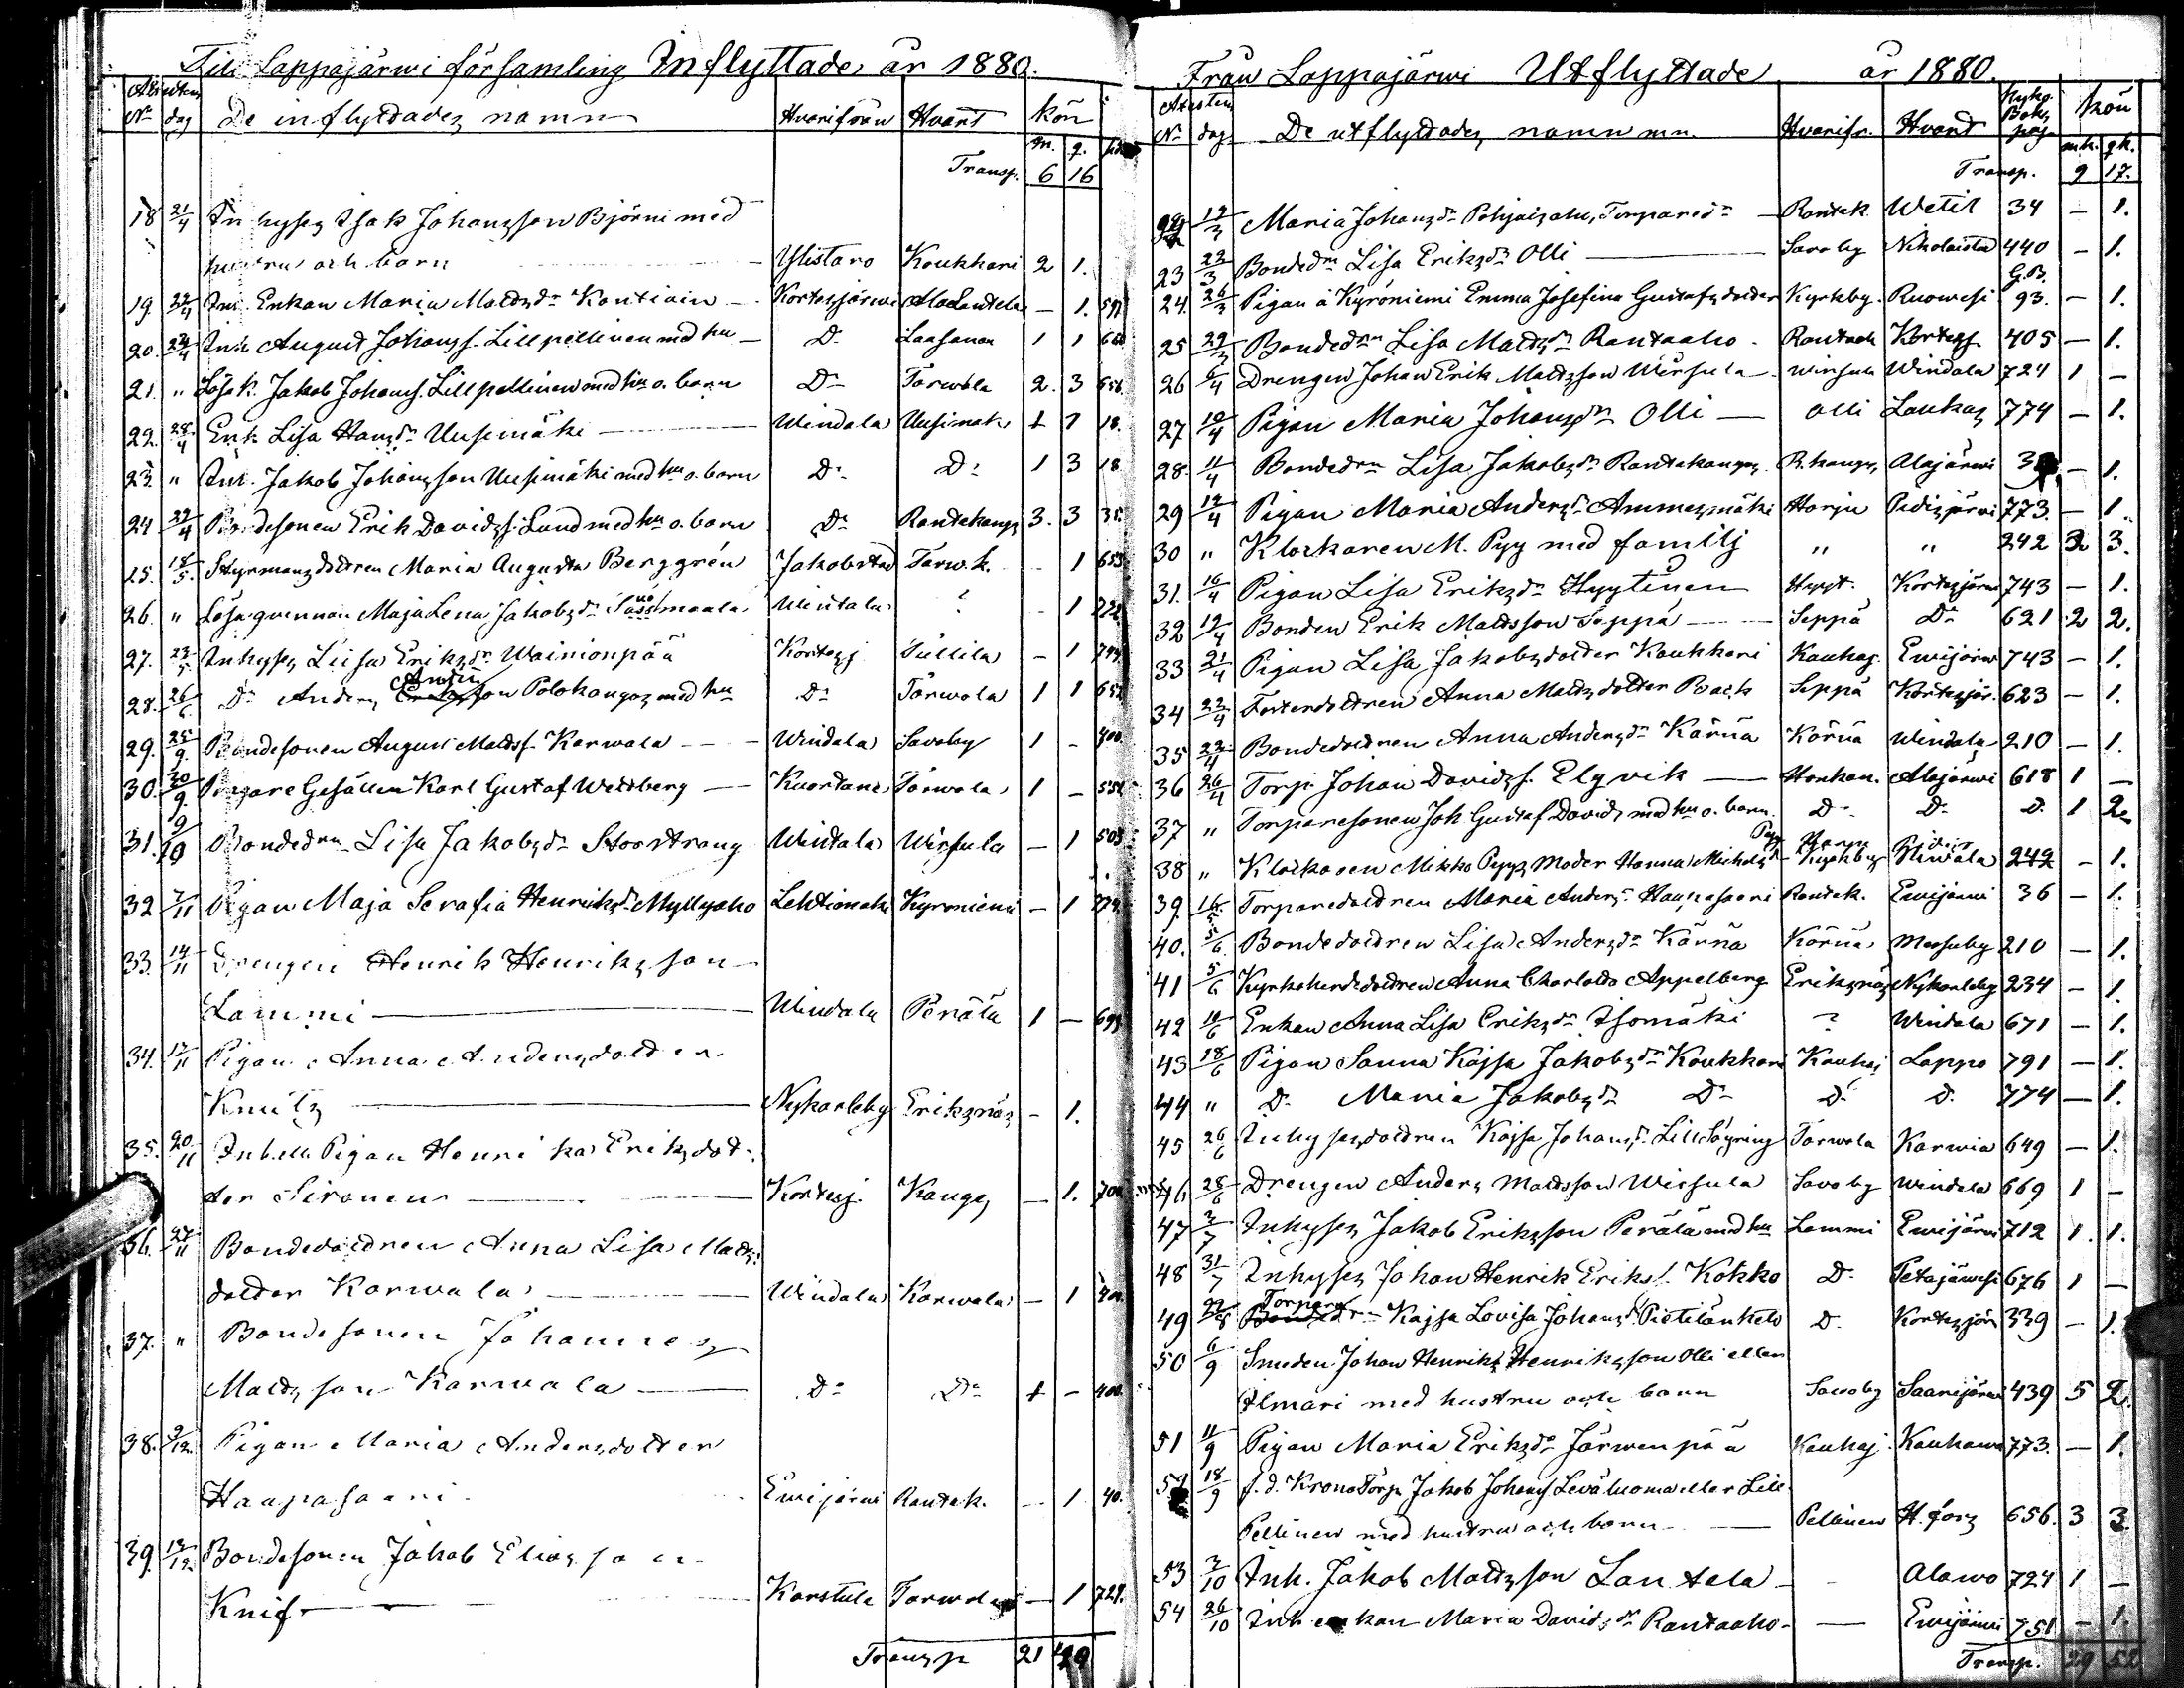 Till Lappajärwi församling Inflyttade år 1880.
Attestens
No dag De inflyttades namn Hvarifrån Hvart kön
m. q. sid
Transp. 6 16
18 21/4 Inhyses Isak Johansson Björni med
hustru och barn Ylistaro Koukkari 2 1.
19. 22/4 Inh. Enkan Maria Mattsdr Kontiain Kortesjärwi - 1. 597
20. 24/4 Inh August Johanss. Lillpellinen med hu Do 1 1
21. " Lösk. Jakob Johanss. Lillpellinen med hu o. barn Do Tarwola 2. 3 656.
22. 28/4 Enk. Lisa Hansdr Uusimäki Windala Uusimäk 1 18.
23. " Inh. Jakob Johansson Uusimäki med hu o. barn Do Do 1 3 18
24 29/4 Bondesonen Erik Davidss. Lund med hu o. barn Do Rantakangs 3. 3 35.
25. 18/5. Styrmansdottren Maria Augusta Berggrén Jakobstad Tarw.k. - 1 655
26. " Lösa qvinnan Maja Lena Jakobsdr Windala ? - 1
27. 23/5 Inhyses Liisa Eriksdr Wainionpää Kortesj Tullila - 1
28. 26/6. Do Anders Polokangas med hu Do Tarwola 1 1 652
29. 25/9. Bondesonen August Mattss. Karwala Windala Savoby 1 - 400
30. 30/9 Garfvare Gesällen Karl Gustaf Wettberg Kuortane Tarwola 1 - 551
31. 9/10 Bondedrn Lisa Jakobsdr Stoorstrang Windala Wirsula - 1 503
32 7/11 Pigan Maja Serafia Henriksdr Myllyaho Lehtimäki Kyroniemi - 1 774
33. 14/11 Drengen Henrik Henriksson
Lammi Windala Perälä 1 - 698
34. 17/11 Pigan Anna Andersdotter
Knuts Nykarleby Eriksnäs - 1.
35. 20/11 Inh. ell. Pigan Henrika Eriksdot-
ter Sironen Kortesj. Kangs - 1. 700
36. 27/11 Bondedottren Anna Lisa Matts-
dotter Karwala Windala Karwala - 1 400.
37. " Bondesonen Johannes
Mattsson Karwala Do Do 1 - 400.
38. 9/12. Pigan Maria Andersdotter
Haapasaari Ewijärwi Rantak. - 1 40.
39. 13/12 Bondesonen Jakob Eliasson
Knif Karstula Tarwola - 1 729.
Transp 21 49
Från Lappajärwi Utflyttade år 1880.
Attestens
No dag De utflyttades namn mm. Hvarifr. Hvart Kyrko Boks pag. kön
mk. qk.
Transp. 9 17.
22 12/3 Maria Johansdr Pohjaisaho, Torparedr Rantak. Wetil 34 - 1.
23 22/3 Bondedrn Lisa Eriksdr Olli Savoby Nikolaistad 440 - 1.
24. 26/3 Pigan å Kyröniemi Emma Josefina Gustafsdotter Kyrkby. Ruowesi G.B. 93. - 1.
25 29/3 Bondedrn Lisa Mattsdr Rantaaho Rantaah Kortesj 405 - 1.
26 6/4 Drengen Johan Erik Mattsson Wirsula Wirsula Windala 724 1 -
27 10/4 Pigan Maria Johansdr Olli Olli Laukas 774 - 1.
28. 11/4 Bondedrn Lisa Jakobsdr Rantakangas R.kangs Alajärwi - 1.
29 12/4 Pigan Maria Andersdr Ammesmäki Harju Pedisjärwi 773. - 1
30 " Klockaren M. Pyy med familj " " 242 3 3.
31. 16/4 Pigan Lisa Eriksdr Hyytinen Hyyt. Kortesjärwi 743 - 1.
32 19/4 Bonden Erik Mattsson Seppä Seppä Do 621 2 2.
33 21/4 Pigan Lisa Jakobsdotter Koukkari Kauhaj. Ewijärwi 743 - 1.
34 22/4 Fosterdottren Anna Mattsdotter Back Seppä Kortesjär. 623 - 1.
35 22/4 Bondedottren Anna Andersdr Kärnä Kärnä Windala 210 - 1.
36 26/4 Torp. Johan Davidss. Elgvik Honkan. Alajärwi 618 1 -
37 " Torparesonen Joh. Gustaf Davids med hu o. barn Do Do D. 1 2
38 " Klockaren Mikko Pyys Moder Hanna Michelsdr Pyy Kyrkby Niwala 242 - 1.
39. 16/5 Torparedottren Maria Andersdr Haapasaari Rantak. Ewijärwi 36 - 1.
40. 5/6 Bondedottren Lisa Andersdr Kärnä Kärnä Messuby 210 - 1.
41 5/6 Kyrkoherdedottren Anna Charlotta Appelberg Eriksnäs Nykarleby 234 - 1.
42 10/6 Enkan Anna Lisa Eriksdr Isomäki ? Windala 671 - 1.
43 18/6 Pigan Sanna Kajsa Jakobsdr Koukkari Kauhaj Lappo 791 - 1.
44 " D. Maria Jakobsdr Do D. D. 774 - 1.
45 26/6 Inhysesdottren Kajsa Johansdr Lillsäyring Tarwola Karwia 649 - 1.
46 28/6 Drengen Anders Mattsson Wirsula Savoby Windala 669 1 -
47 3/7 Inhyses Jakob Eriksson Perälä med hu Lammi Ewijärwi 712 1. 1.
48 31/7 Inhyses Johan Henrik Erikss. Kokko D. Petäjäwesi 676 1 -
49 22/8 Torpare Bondedrn Kajsa Lovisa Johansdr Pietilänketo D. Kortesjär 339 - 1.
50 6/9 Smeden Johan Henriks Henriksson Olli eller
Ilmari med hustru och barn Savoby Saarijärwi 439 5 2.
51 11/9 Pigan Maria Eriksdr Järwenpää Kauhaj. Kauhawa 773. - 1.
52 18/9 f.d. KronoTorp. Jakob Johanss Leväluoma eller Lill-
Pellinen med hustru och barn Pellinen H.fors 656. 3 3.
53 3/10 Inh. Jakob Mattsson Lantela - Alawo 724 1 -
54 26/10 Inh enkan Maria Davidsdr Rantaaho - Ewijärwi 751 - 1.
Transp. 29 52